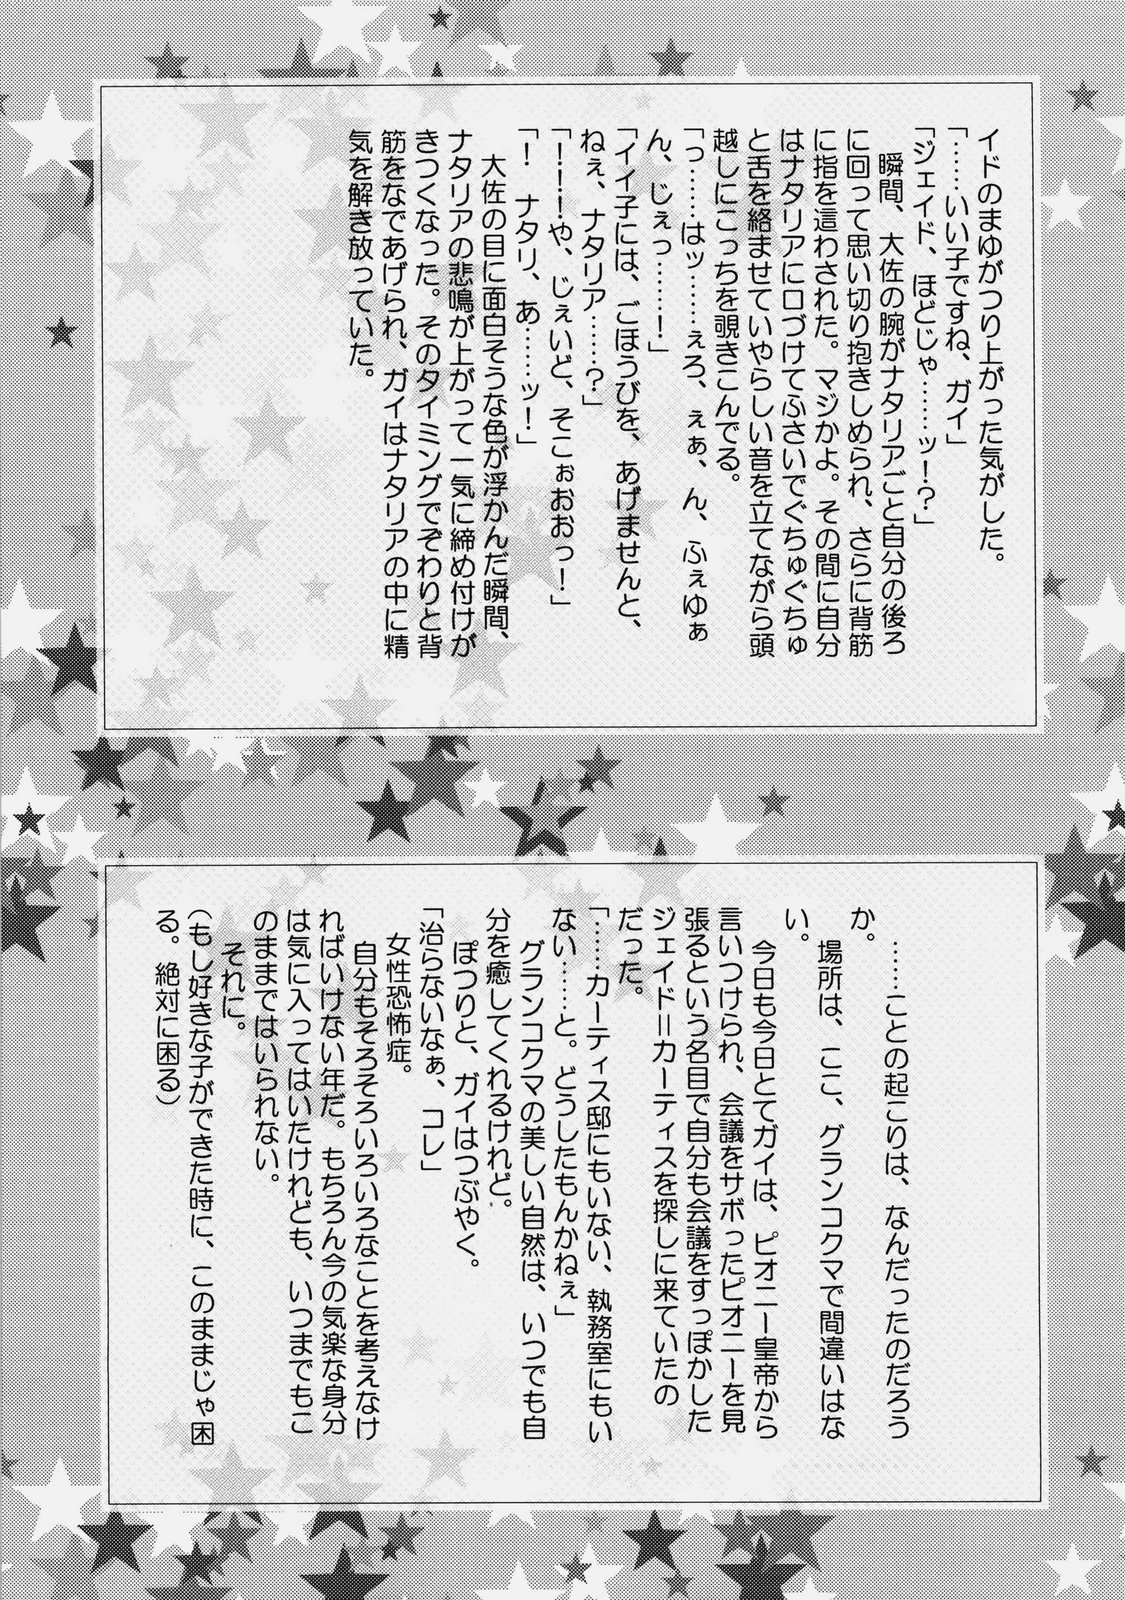 イドのまゆがつり上がった気がした。
「……いい子ですね、ガイ」
「ジェイド、ほどじゃ……ッ！？」
瞬間、大佐の腕がナタリアごと自分の後ろ
に回って思い切り抱きしめられ、さらに背筋
に指を這わされた。マジかよ。その間に自分
はナタリアに口づけてふさいでぐちゅぐちゅ
と舌を絡ませていやらしい音を立てながら頭
越しにこっちを覗きこんでる。
「っ……はッ……ぇろ、ぇぁ、ん、ふぇゅぁ
ん、じぇっ……！」
「イイ子には、ごほうびを、あげませんと、
ねぇ、ナタリア……？」
「！！！や、じぇいど、そこぉおおっ！」
「！　ナタリ、あ……ッ！」
大佐の目に面白そうな色が浮かんだ瞬間、
ナタリアの悲鳴が上がって一気に締め付けが
きつくなった。そのタイミングでぞわりと背
筋をなであげられ、ガイはナタリアの中に精
気を解き放っていた。
……ことの起こりは、なんだったのだろう
か。
場所は、ここ、グランコクマで間違いはな
い。
今日も今日とてガイは、ピオニー皇帝から
言いつけられ、会議をサボったピオニーを見
張るという名目で自分も会議をすっぽかした
ジェイド＝カーティスを探しに来ていたの
だった。
「……カーティス邸にもいない、執務室にもい
ない……と。どうしたもんかねぇ」
グランコクマの美しい自然は、いつでも自
分を癒してくれるけれど。
ぽつりと、ガイはつぶやく。
「治らないなぁ、コレ」
女性恐怖症。
自分もそろそろいろいろなことを考えなけ
ればいけない年だ。もちろん今の気楽な身分
は気に入ってはいたけれども、いつまでもこ
のままではいられない。
それに。
（もし好きな子ができた時に、このままじゃ困
る。絶対に困る）